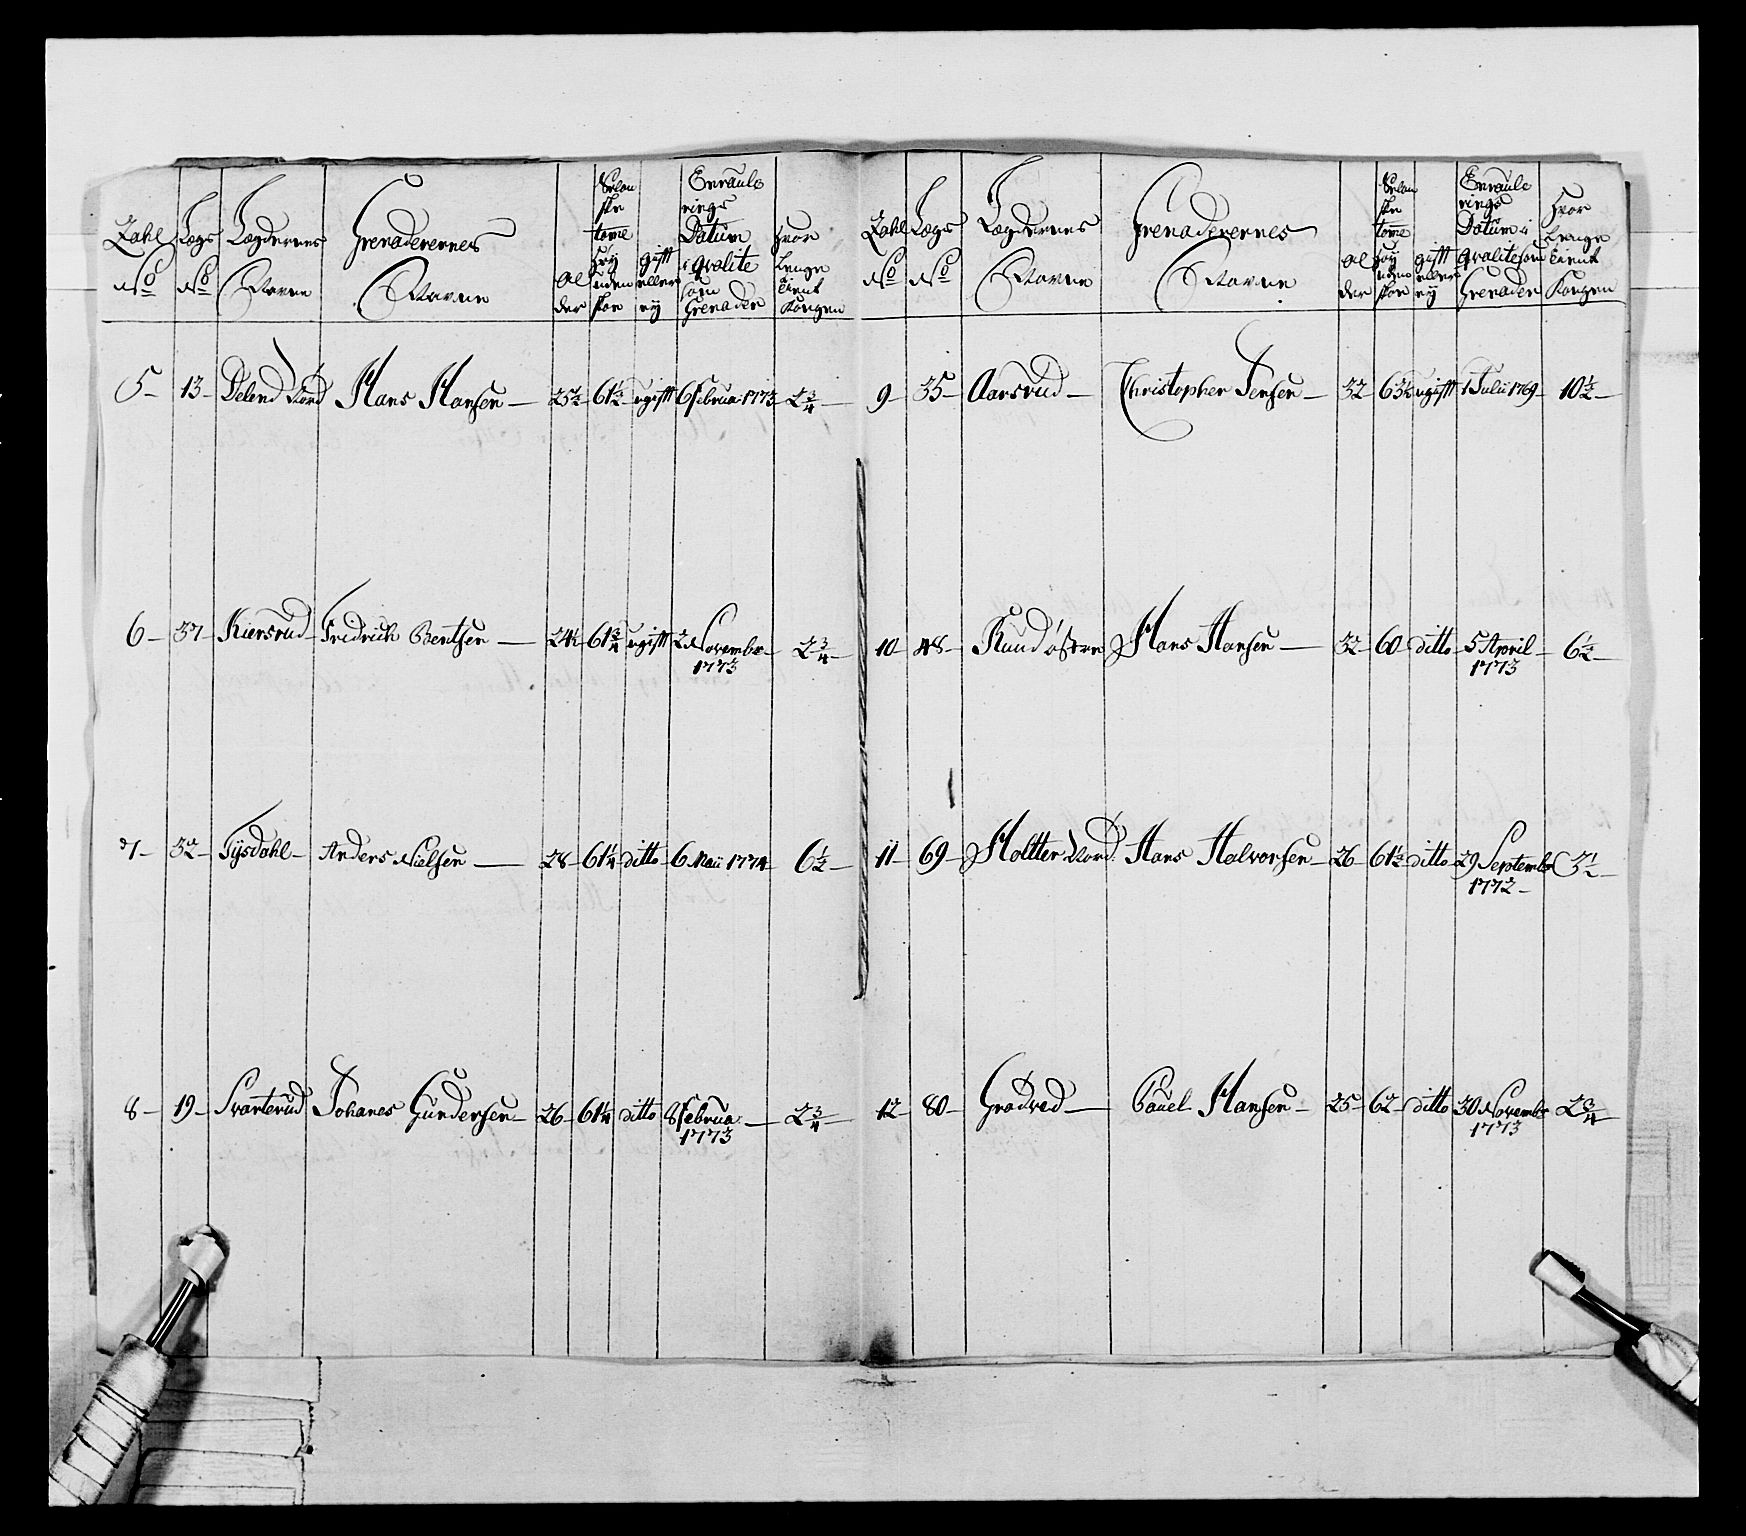 Zahl No
Lægs No
Lægdernes Navne
Grenaderernes Navne
Alder
tome høy uden skoe
gifft eller ey
Enroulerings Datum i qvalite som Grenader
Hvor Lenge tient Kongen
5 13 Delend Nord Hans Hansen 25 1/2 61 1/2 ugifft 6 Februa: 1773 2 3/4
6 37 Kiersrud Fridrich Bentsen 24 1/2 61 3/4 ugifft 2 Novembr 1773 2 3/4
7 32 Tÿsdahl Anders Nielsen 28 61 1/4 ditto 6 Maii 1774 6 1/2
8 19 Svarterud Johanes Gundersen 26 61 1/4 ditto 8 Februa: 1773 2 3/4
Zahl No
Lægs No
Lægdernes Navne
Grenaderernes Navne
Alder
tome høy uden skoe
gifft eller ey
Enroulerings Datum i qvalite som Grenader
Hvor Lenge tient Kongen
9 35 Aarsrud Christopher Jensen 32 63 1/2 ugifft 1 Julii 1769 10 1/2
10 48 Ruud østre Hans Hansen 32 60 ditto 5 April 1773 6 1/2
11 69 Holtter Nord: Hans Halvorsen 26 61 1/2 ditto 29 Septembr 1772 3 1/2
12 80 Gradved Pauel Hansen 25 62 ditto 30 Novembr 1773 2 3/4